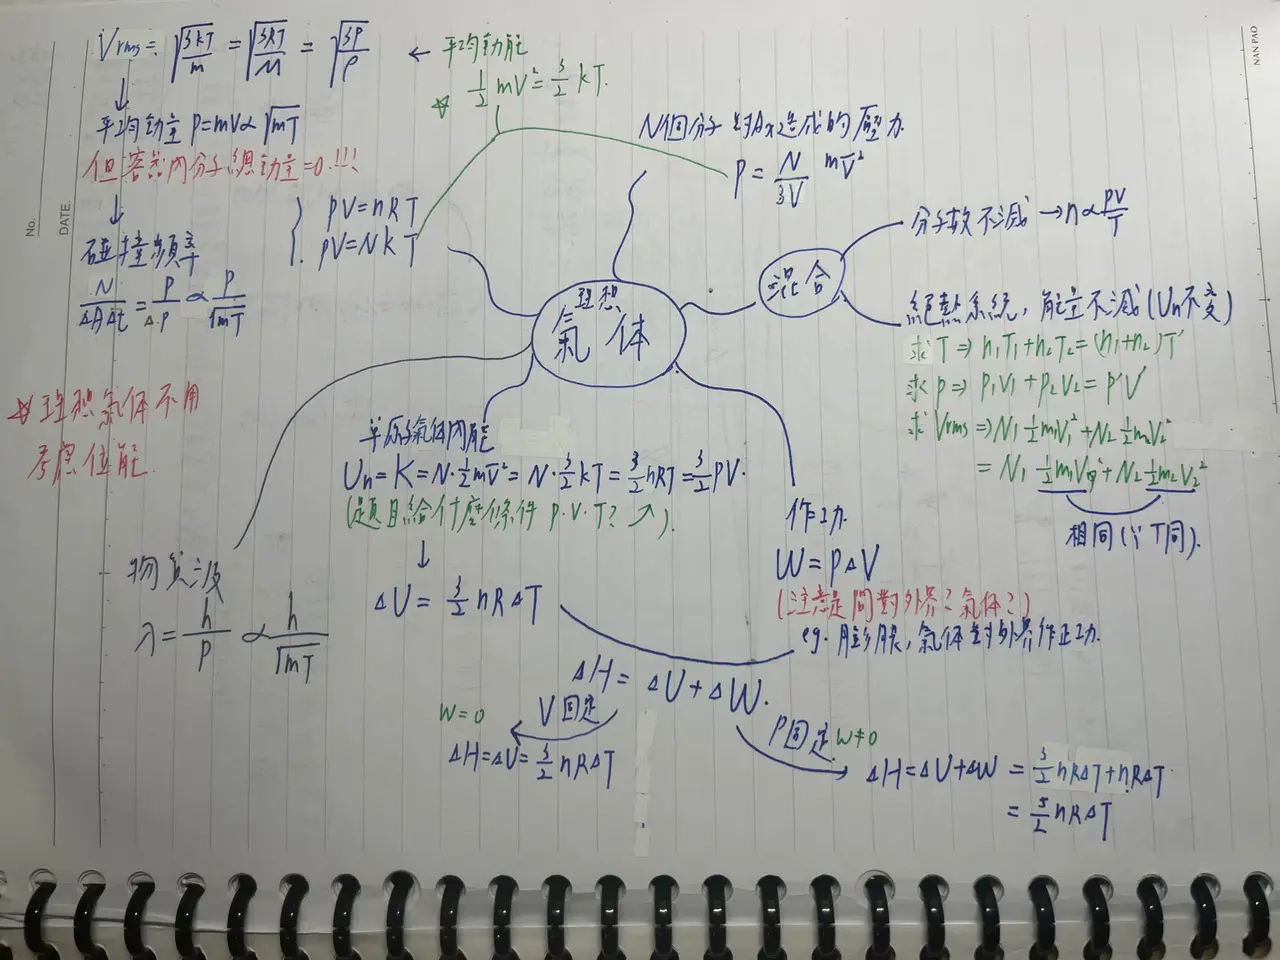 No.
DATE.
NAN PAO
Vrms = √(3kT/m) = √(3RT/M) = √(3P/ρ) ← 平均動能
☆ ½mV² = 3/2 kT.
↓
平均動量 P=mV∝√mT
但容器內分子總動量=0!!!
↓
碰撞頻率
N/ΔAΔt = P/Δp ∝ P/√mT
PV=nRT
PV=NkT
☆理想氣体不用
考慮位能.
N個分子對Ax造成的壓力
P = N/3V mV̄²
理想
氣体
混合
分子數不滅→n∝PV/T
絕熱系統,能量不滅(Un不變)
求T⇒n₁T₁+n₂T₂=(n₁+n₂)T'
求p⇒P₁V₁+P₂V₂=P'V'
求Vrms⇒N₁½m₁V₁²+N₂½m₂V₂²
=N₁½m₁V₁'²+N₂½m₂V₂'²
相同(∵T同).
單原子氣体內能
Un=K=N·½mV̄²=N·3/2kT=3/2nRT=3/2PV.
(題目給什麼條件 P.V.T?↗).
↓
ΔU=3/2nRΔT
物質波
λ=h/P∝h/√mT
作功
W=PΔV
(注意是問對外界?氣体?)
eg.膨脹,氣体對外界作正功.
ΔH=ΔU+ΔW.
V固定
W=0
ΔH=ΔU=3/2nRΔT
P固定 W≠0
ΔH=ΔU+ΔW=3/2nRΔT+nRΔT
=5/2nRΔT